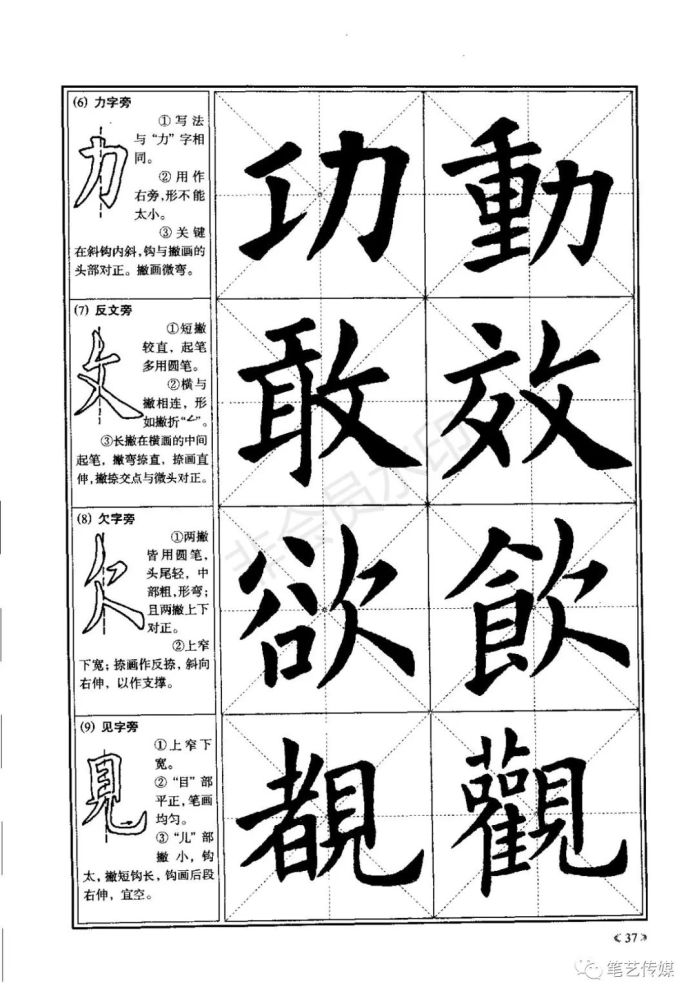 (6) 力字旁
力
①写法
与“力”字相
同。
②用作
右旁,形不能
太小。
③关键
在斜钩内斜,钩与撇画的
头部对正。撇画微弯。
功動
(7) 反文旁
攵
①短撇
较直，起笔
多用圆笔。
②横与
撇相连，形
如撇折“∠”。
③长撇在横画的中间
起笔，撇弯捺直，捺画直
伸,撇捺交点与微头对正。
敢效
(8) 欠字旁
欠
①两撇
皆用圆笔，
头尾轻，中
部粗,形弯；
且两撇上下
对正。
②上窄
下宽；捺画作反捺，斜向
右伸，以作支撑。
欲飲
(9) 见字旁
見
①上窄下
宽。
②“目”部
平正，笔画
均匀。
③“儿”部
撇小，钩
太，撇短钩长，钩画后段
右伸，宜空。
覩觀
非会员水印
《37》
笔艺传媒